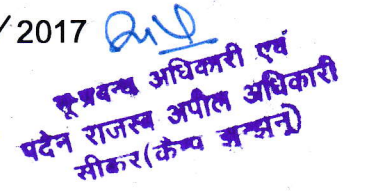 /2017
भू-प्रबन्ध अधिकारी एवं
पदेन राजस्व अपील अधिकारी
सीकर(कैम्प झुन्झुनू)